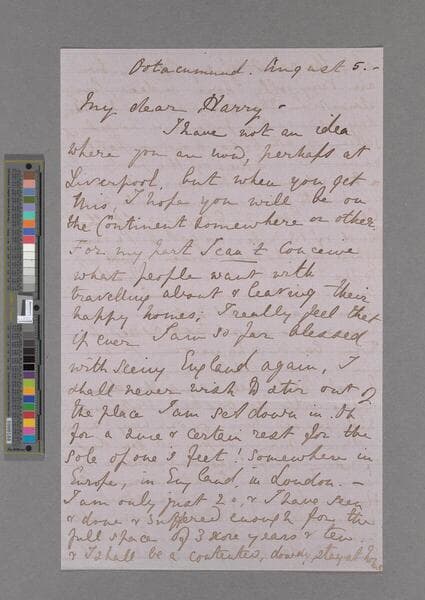 Ootacumund. August 5.-
My dear Harry-
I have not an idea
where you are now, perhaps at
Liverpool, but when you get
this, I hope you will be on
the Continent somewhere or other.
For my part I can't conceive
what people want with
travelling about & leaving their
happy homes; I really feel that
if ever I am so far blessed
with seeing England again, I
shall never wish to stir out of
the place I am set down in. Oh
for a sure & certain rest for the
sole of one's feet! Somewhere in
Europe, in England in London. -
I am only just 20, & I have seen
& done & suffered enough for the
full space of 3 score years & ten
& I shall be a contented, dowdy, stay at home